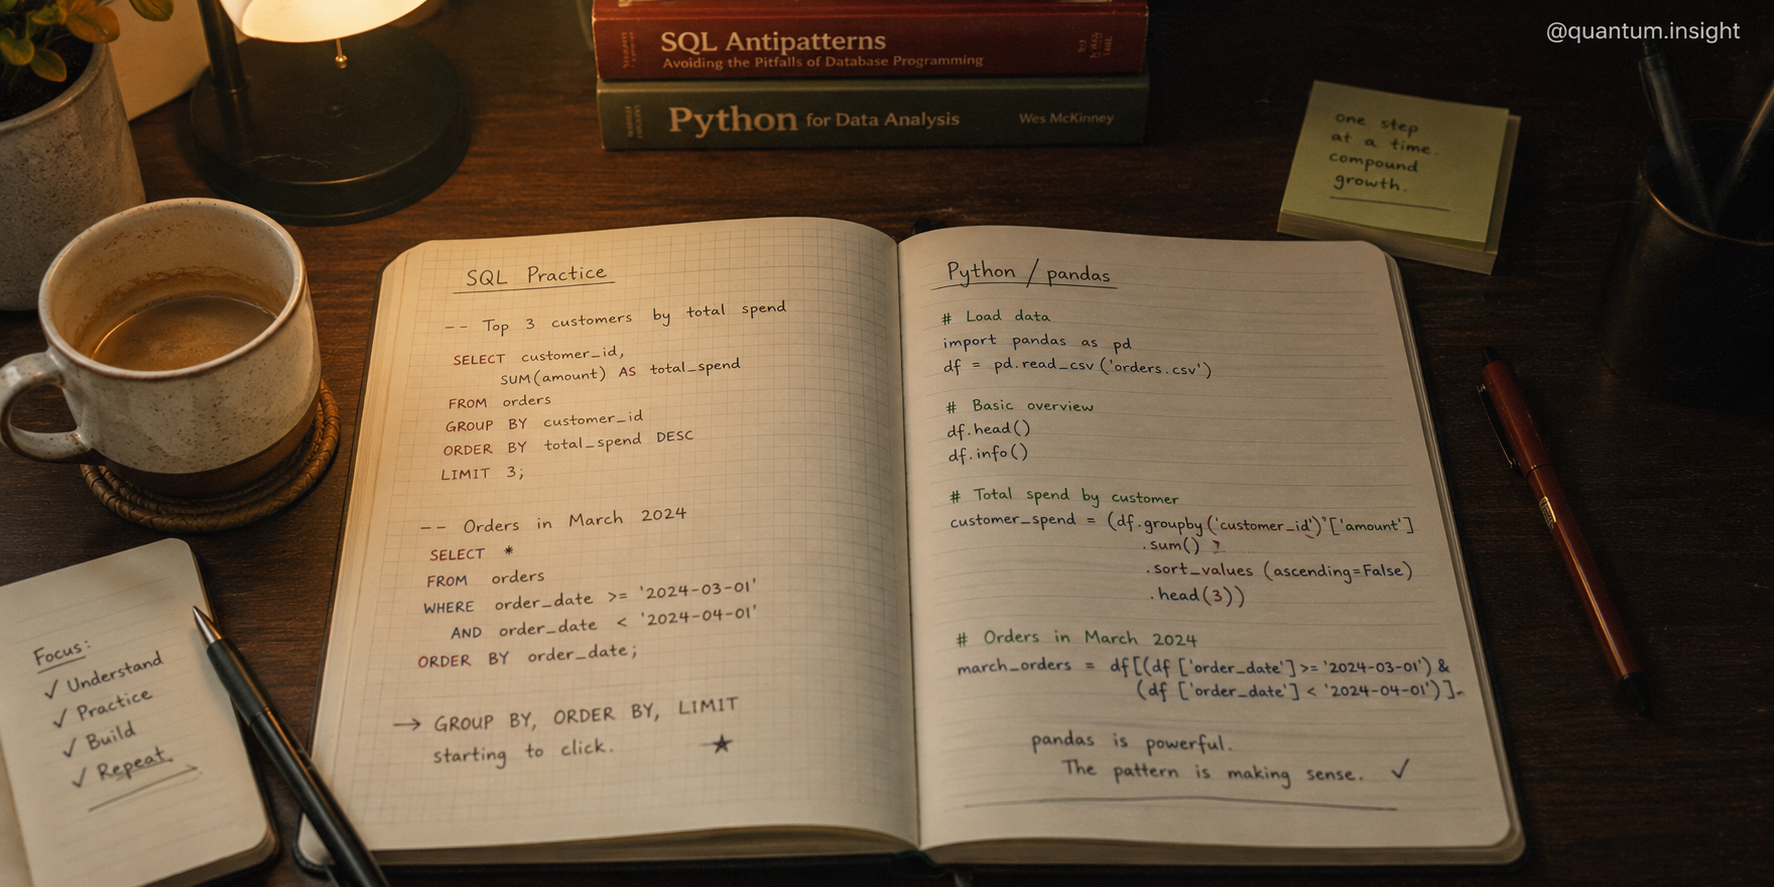 @quantum.insight
SQL Antipatterns
Avoiding the Pitfalls of Database Programming
Python for Data Analysis Wes McKinney
one step
at a time.
compound
growth.
SQL Practice
-- Top 3 customers by total spend
SELECT customer_id,
SUM(amount) AS total_spend
FROM orders
GROUP BY customer_id
ORDER BY total_spend DESC
LIMIT 3;
-- Orders in March 2024
SELECT *
FROM orders
WHERE order_date >= '2024-03-01'
AND order_date < '2024-04-01'
ORDER BY order_date;
→ GROUP BY, ORDER BY, LIMIT
starting to click. ★
Python / pandas
# Load data
import pandas as pd
df = pd.read_csv('orders.csv')
# Basic overview
df.head()
df.info()
# Total spend by customer
customer_spend = (df.groupby('customer_id')'['amount']
.sum()
.sort_values (ascending=False)
.head(3))
# Orders in March 2024
march_orders = df[(df ['order_date'] >= '2024-03-01') &
(df ['order_date'] < '2024-04-01')]
pandas is powerful.
The pattern is making sense. ✓
Focus:
✓ Understand
✓ Practice
✓ Build
✓ Repeat